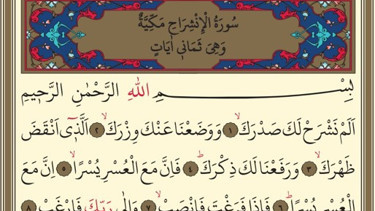 سُورَةُ الْاِنْشِرَاحِ مَكِّيَّةٌ
وَهِىَ ثَمَانِى اٰيَاتٍ
بِسْــــــمِ اللّٰهِ الرَّحْمٰنِ الرَّحٖيمِ
اَلَمْ نَشْرَحْ لَكَ صَدْرَكَۙ ﴿١﴾ وَوَضَعْنَا عَنْكَ وِزْرَكَۙ ﴿٢﴾ اَلَّذٖٓى اَنْقَضَ
ظَهْرَكَۙ ﴿٣﴾ وَرَفَعْنَا لَكَ ذِكْرَكَؕ ﴿٤﴾ فَاِنَّ مَعَ الْعُسْرِ يُسْرًاۙ ﴿٥﴾ اِنَّ مَعَ
الْعُسْرِ يُسْرًاؕ ﴿٦﴾ فَاِذَا فَرَغْتَ فَانْصَبْۙ ﴿٧﴾ وَاِلٰى رَبِّكَ فَارْغَبْ ﴿٨﴾